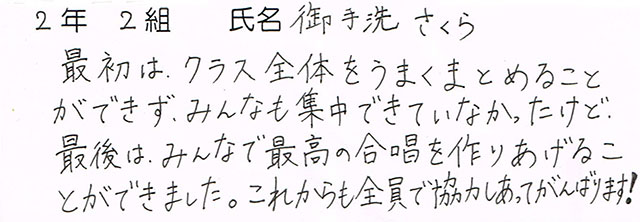 2年 2組 氏名 御手洗 さくら
最初は、クラス全体をうまくまとめること
ができず、みんなも集中できていなかったけど、
最後は、みんなで最高の合唱を作りあげるこ
とができました。これからも全員で協力しあってがんばります!